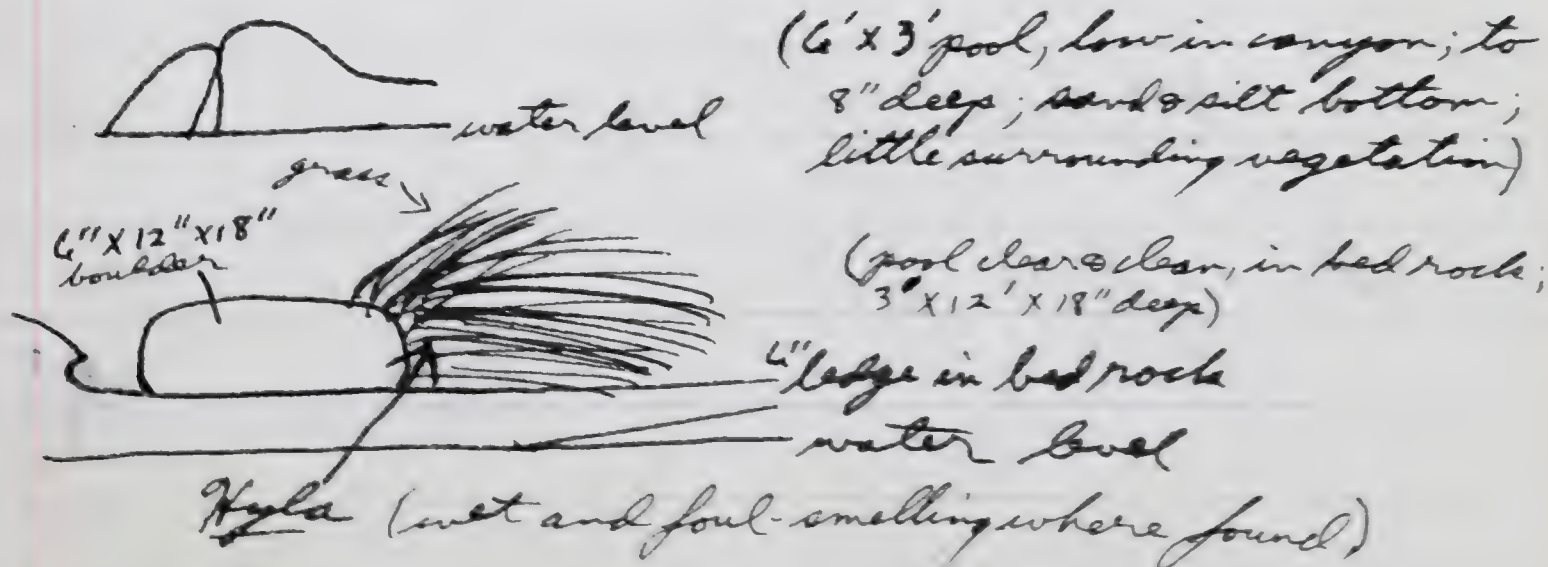 (6' x 3' pool, low in canyon; to
8" deep; sand & silt bottom;
little surrounding vegetation)
water level
grass
6" x 12" x 18"
boulder
(pool clear & clean, in bed rock;
3' x 12' x 18" deep)
6" ledge in bed rock
water level
Hyla (wet and foul-smelling where found)